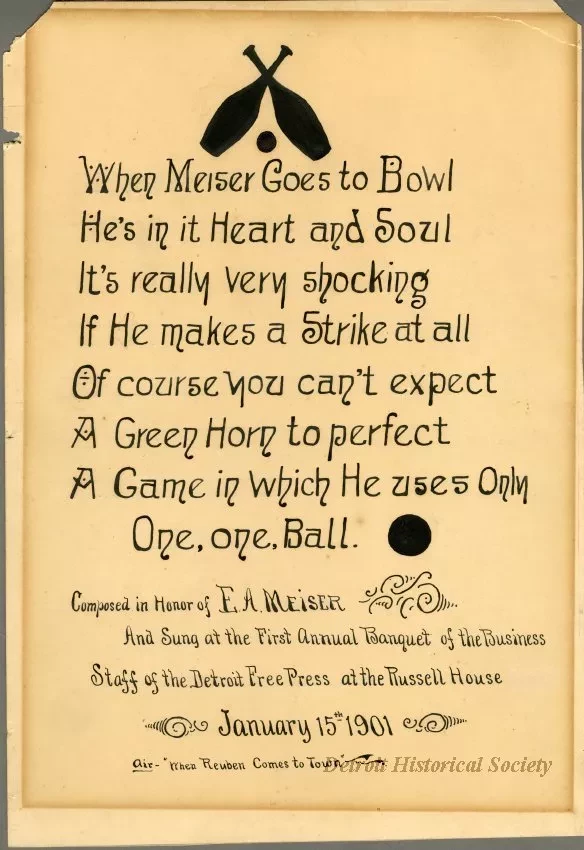 When Meiser Goes to Bowl
He's in it Heart and Soul
It's really very shocking
If He makes a Strike at all
Of course you can't expect
A Green Horn to perfect
A Game in which He uses Only
One, one, Ball.
Composed in Honor of E.A. Meiser
And Sung at the First Annual Banquet of the Business
Staff of the Detroit Free Press at the Russell House
January 15th 1901
Air - "When Reuben Comes to Town"
Detroit Historical Society